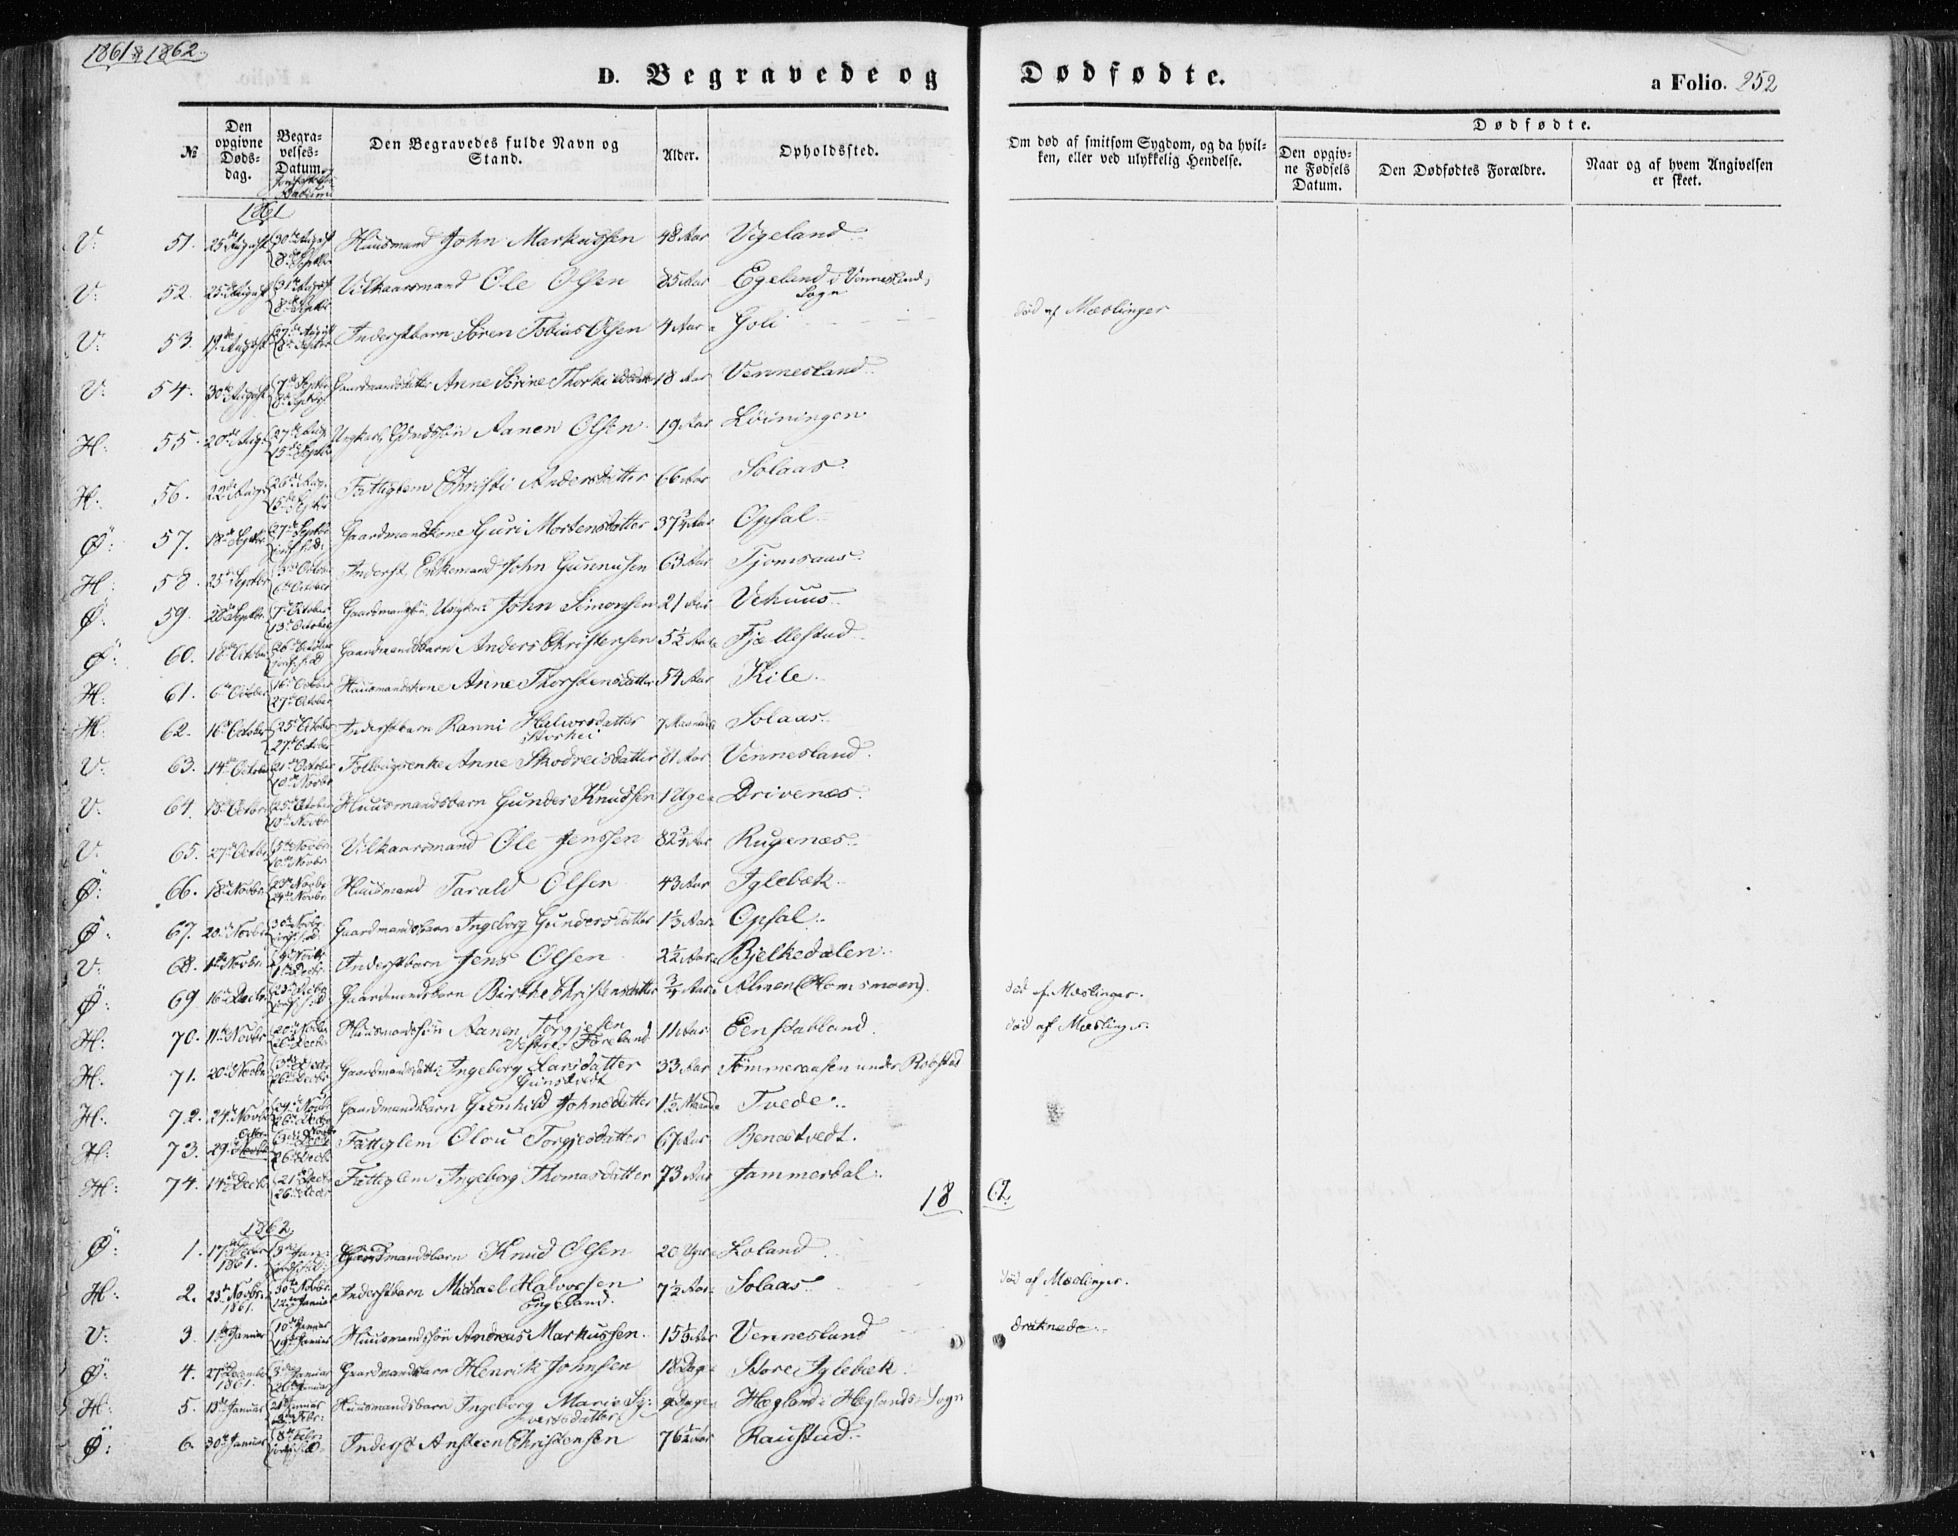 1861 & 1862.
D. Begravede og Dødfødte. a Folio. 252
№
Den opgivne Døds-dag.
Begra-velses-Datum.
Den Begravedes fulde Navn og Stand.
Alder.
Opholdssted.
Om død af smitsom Sygdom, og da hvil-ken, eller ved ulykkelig Hendelse.
Dødfødte.
Den opgiv-ne Fødsels Datum.
Den Dødfødtes Forældre.
Naar og af hvem Angivelsen er skeet.
1861
V: 51. 25de August 30te August 8de Septbr Huusmand John Markussen 48 Aar Vigeland
V: 52. 25de August 31te August 8de Septbr Vilkaarsmand Ole Olsen 85 Aar Egeland i Vennesland, Sogn
V: 53. 19de August 27de August 8de Septbr Inderstbarn Søren Tobias Olsen 4 Aar Goli død af Mæslinger
V: 54. 30te August 7de Septbr 8de Septbr Gaardmandsdatter Anne Sørine 18 Aar Vennesland
H: 55. 20de Aug. 27de Aug. 15de Septbr Ungkarl, Aanen Olsen 19 Aar Løiningen
H: 56. 22de Aug. 26de Aug. 15de Septbr Fattiglem Christi Andersdatter 66 Aar Solaas
Ø: 57. 18de Septbr 27de Septbr Gaardmandskone Guri Mortensdatter 37 Aar Opsal
H: 58. 25de Septbr October 6te October Inderst, Enkemand John Gunnusen 63 Aar Tjomsaas
Ø: 59. 28de Septbr 7de October 13de October Ungkarl John Simonsen 21 Aar Vehuus
Ø: 60. 18de Octobr 26de October Gaardmandsbarn Anders Christensen 5½ Aar Fjællestad
H: 61. 6te October 16de October 27de October Huusmandskone Anne Thorstensdatter 54 Aar Kile
H: 62. 16de October 25de October 27de October Inderstbarn Ranni Halvorsdatter Storhei 7 Maaneder Solaas
V: 63. 14de Octobr 21de October 10de Novbr Anne Skodreisdatter 81 Aar Vennesland
V: 64. 18de Octobr 25de October 10de Novbr Huusmandsbarn Gunder Knudsen 1 Uge Drivenes
V: 65. 27de Octobr 5te Novbr 10de Novbr Vilkaarsmand Ole Jenssen 82¾ Aar Rugenæs
Ø: 66. 18de Novbr 23de Novbr 24de Novbr Huusmand Tarald Olsen 43 Aar Iglebæk
Ø: 67. 20de Novbr 30te Novbr Gaardmandsbarn Ingeborg Gundersdatter 1⅓ Aar Opsal
V: 68. Novbr Novbr 1ste Decbr Inderstbarn Jens Olsen 2½ Aar Bjelkedalen
Ø: 69. 16de Decbr 23de Decbr Gaardmandsbarn Birthe Christensdatter ¾ Aar Almen (Homsmoen). død af Mæslinger.
H: 70. 11te Novbr 20de Novbr 26de Decbr Huusmandssøn Aanen Torgjesen Vestre Føreland 11 Aar Eenstabland død af Mæslinger.
H: 71. 20de Novbr 3die Decbr 26de Decbr Gaardmandsdatter Ingeborg Larsdatter Gunstvedt 33 Aar Tømmeraasen under Robstad
H: 72. 24de Novbr 29de Novbr 26de Decbr Gaardmandsbarn Gunhild Johnsdatter 1½ Maaned Tvede
H: 73. 29de Octbr. Novbr 26de Decbr Fattiglem Olou Torgjesdatter 67 Aar Benestvedt.
H: 74. 14de Decbr 21de Decbr 26de Decbr Fattiglem Ingeborg Thomasdatter 73 Aar Jammerdal
1862.
1862
Ø: 1. 17de Decbr 1861. 3die Jan: Gaardmandsbarn Knud Olsen 20 Uger Loland
H: 2. 23de Novbr. 1861. 30te Novbr 12te Januar Inderstbarn Michael Halvorsen Engeland. 7½ Aar Solaas død af Mæslinger.
V: 3. 1ste Januar 10de Januar 19de Januar Huusmandssøn Andreas Markussen 15⅓ Aar Vennesland druknede
Ø: 4. 27de December 1861. 3die Januar 26de Januar Gaardmandsbarn Henrik Johnsen 18 Dage Store Iglebæk
H: 5. 13de Januar 21de Januar Febr: Huusmandsbarn Ingeborg Marie Sy: versdatter 9 Dage Hægland i Hæglands Sogn
Ø: 6. 30te Januar 8de Febr: Inderst Ansteen Christensen 76½ Aar Raustad